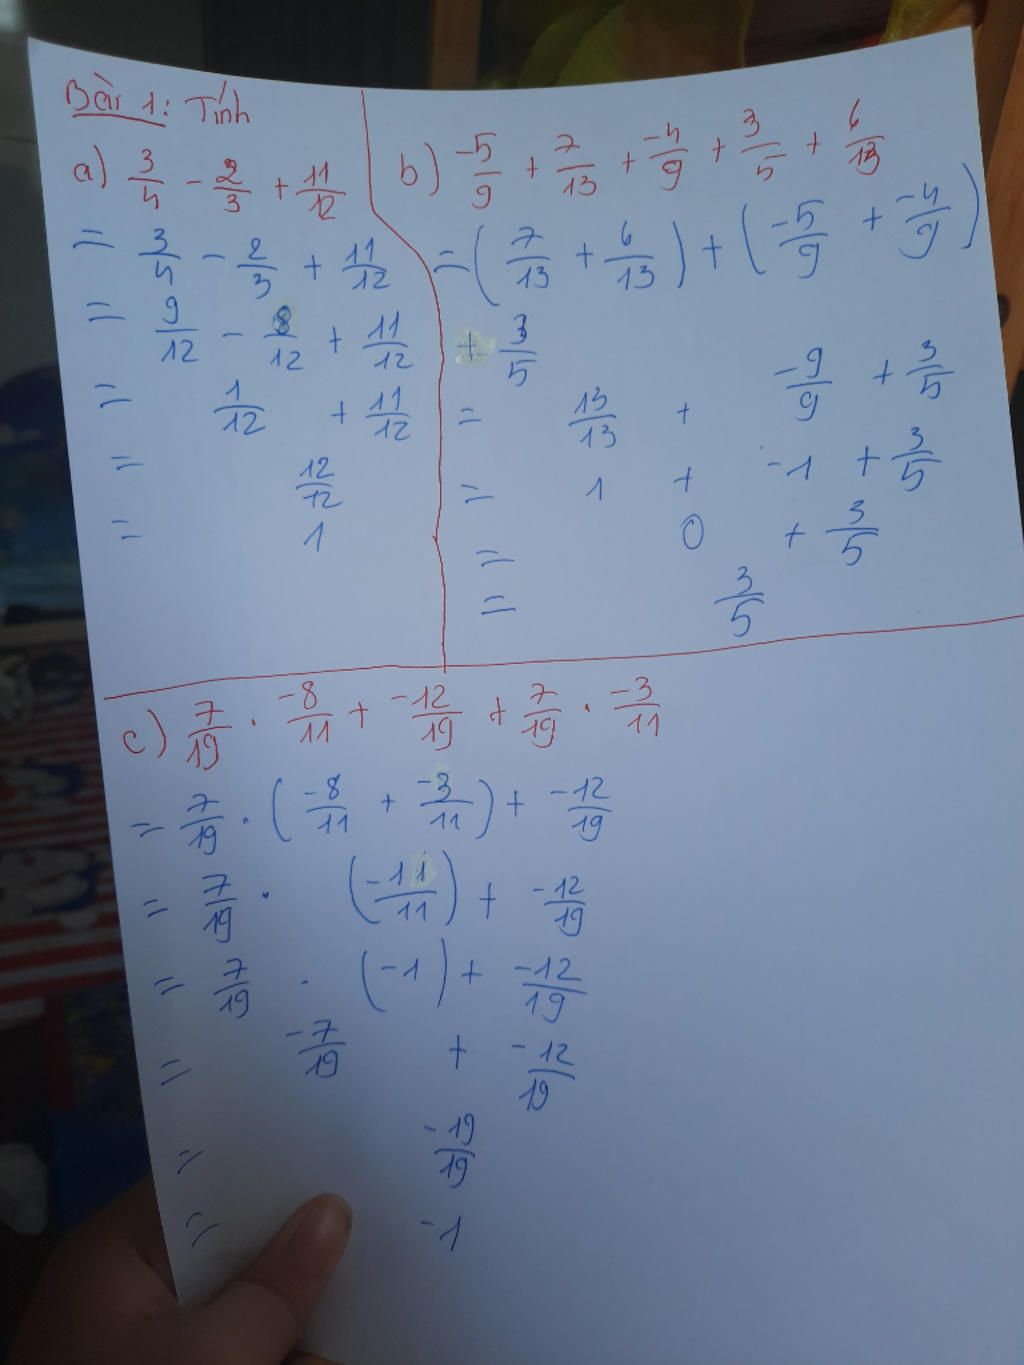 Bài 1: Tính
a) 3/4 - 2/3 + 11/12
= 3/4 - 2/3 + 11/12
= 9/12 - 8/12 + 11/12
= 1/12 + 11/12
= 12/12
= 1
b) -5/9 + 7/13 + -4/9 + 3/5 + 6/13
= (7/13 + 6/13) + (-5/9 + -4/9)
+ 3/5
= 13/13 + -9/9 + 3/5
= 1 + -1 + 3/5
= 0 + 3/5
= 3/5
c) 7/19 . -8/11 + -12/19 + 7/19 . -3/11
= 7/19 . (-8/11 + -3/11) + -12/19
= 7/19 . (-11/11) + -12/19
= 7/19 . (-1) + -12/19
= -7/19 + -12/19
= -19/19
= -1